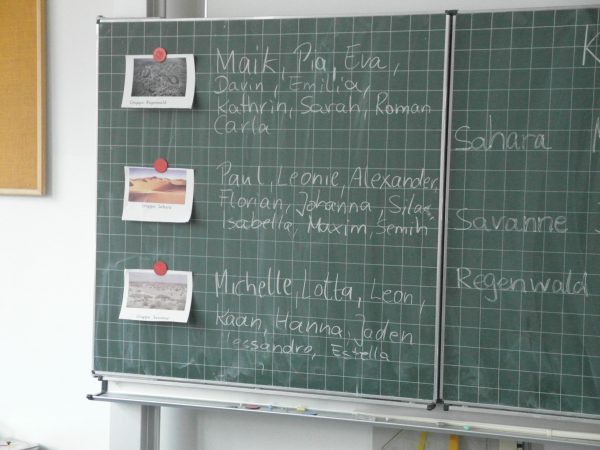 Maik, Pia, Eva,
Davin, Emilia,
Kathrin, Sarah, Roman
Carla
Gruppe Regenwald
Paul, Leonie, Alexander
Florian, Johanna, Silas,
Isabella, Maxim, Semih
Gruppe Sahara
Michelle, Lotta, Leon,
Kaan, Hanna, Jaden
Alessandro, Estella
Gruppe Savanne
K
Sahara
Savanne
Regenwald